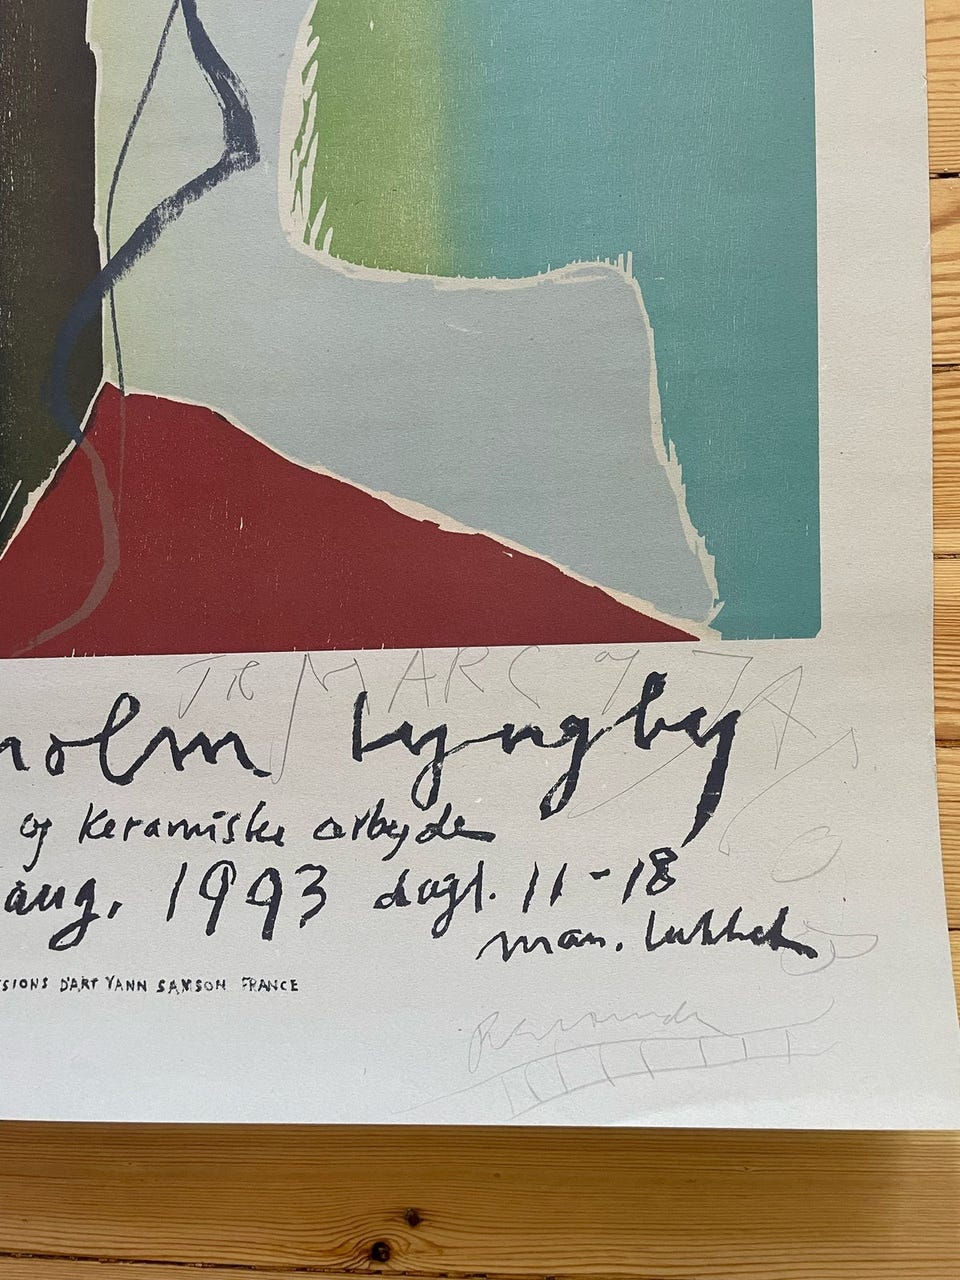 TIL MARC OG JA
holm Lyngby
og keramiske arbejde
aug. 1993 dagl. 11-18
man. lukket
SIONS D'ART YANN SAMSON FRANCE